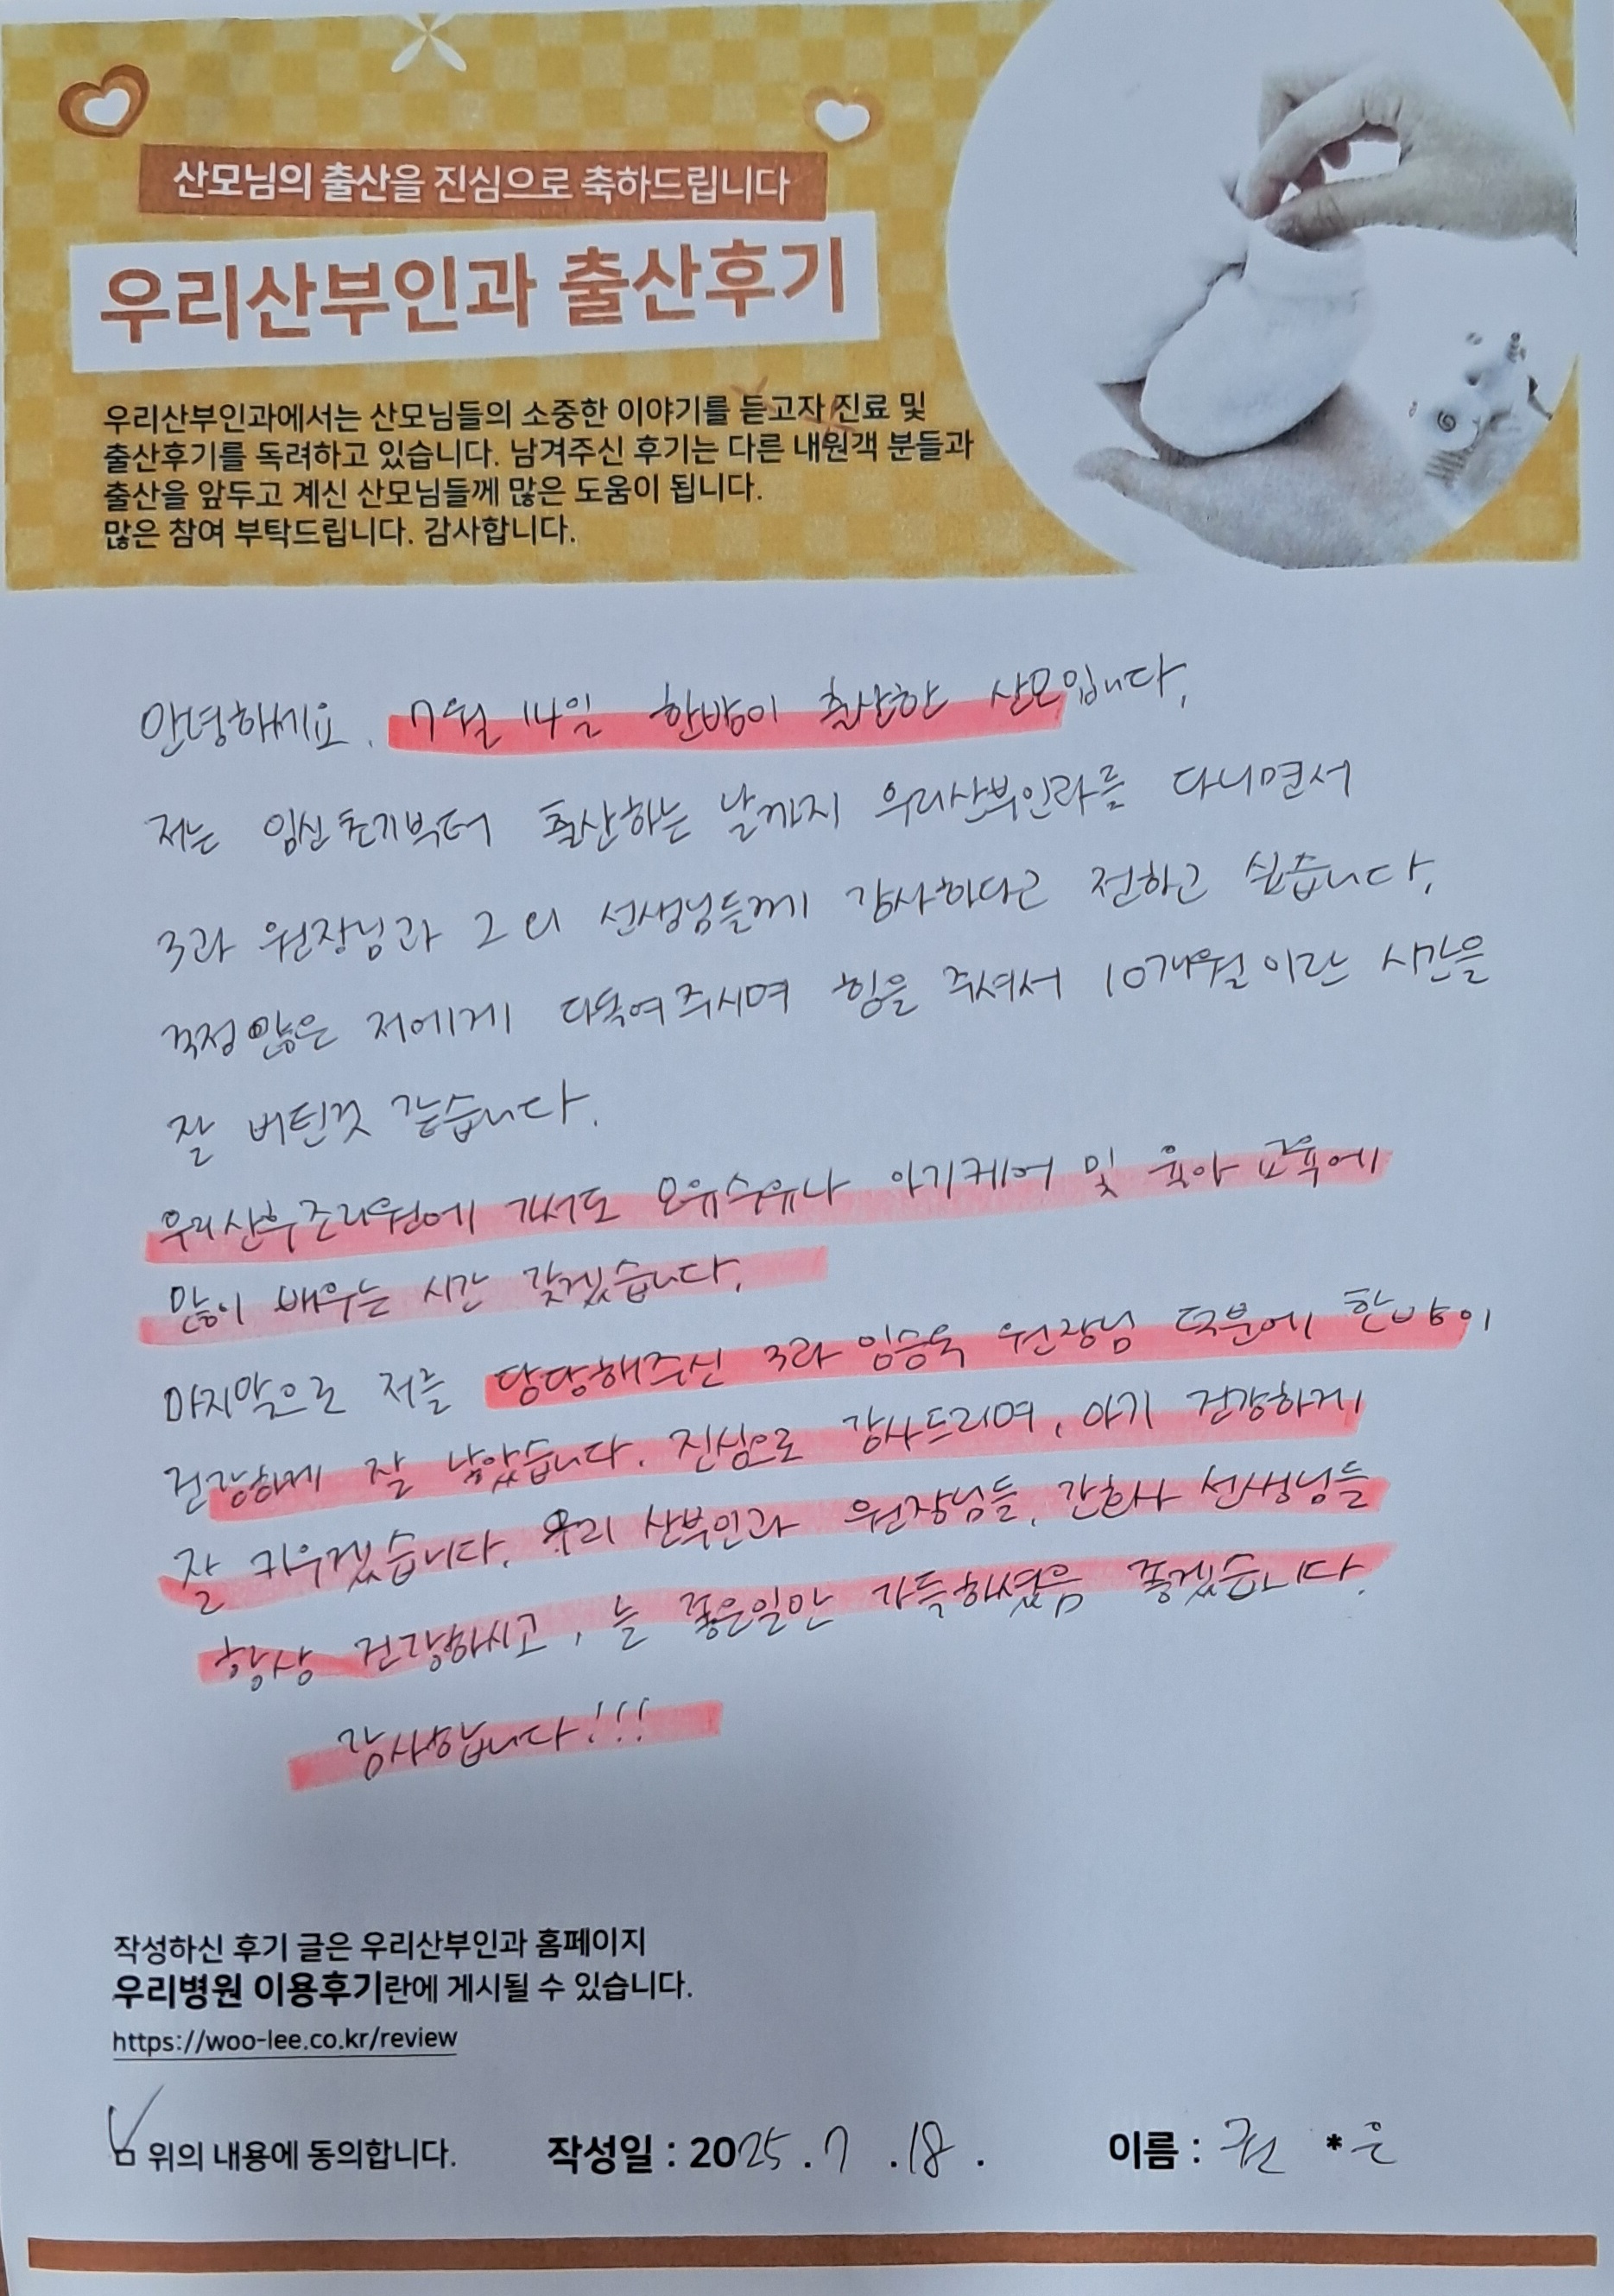 산모님의 출산을 진심으로 축하드립니다
우리산부인과 출산후기
우리산부인과에서는 산모님들의 소중한 이야기를 듣고자 진료 및
출산후기를 독려하고 있습니다. 남겨주신 후기는 다른 내원객 분들과
출산을 앞두고 계신 산모님들께 많은 도움이 됩니다.
많은 참여 부탁드립니다. 감사합니다.
안녕하세요. 7월 14일 한방이 출산한 산모입니다.
저는 임신 초기부터 출산하는 날까지 우리산부인과를 다니면서
3과 원장님과 그 외 선생님들께 감사하다고 전하고 싶습니다.
걱정 많은 저에게 다독여주시며 힘을 주셔서 10개월이란 시간을
잘 버틴것 같습니다.
우리산후조리원에 가서도 모유수유나 아기케어 및 육아 교육에
많이 배우는 시간 갖겠습니다.
마지막으로 저를 담당해주신 3과 임승욱 원장님 덕분에 한방이
건강하게 잘 낳았습니다. 진심으로 감사드리며, 아기 건강하게
잘 키우겠습니다. 우리 산부인과 원장님들, 간호사 선생님들
항상 건강하시고, 늘 좋은일만 가득하셨음 좋겠습니다.
감사합니다!!!
작성하신 후기 글은 우리산부인과 홈페이지
우리병원 이용후기란에 게시될 수 있습니다.
https://woo-lee.co.kr/review
위의 내용에 동의합니다. 작성일 : 2025.7.18. 이름 : 권 *은